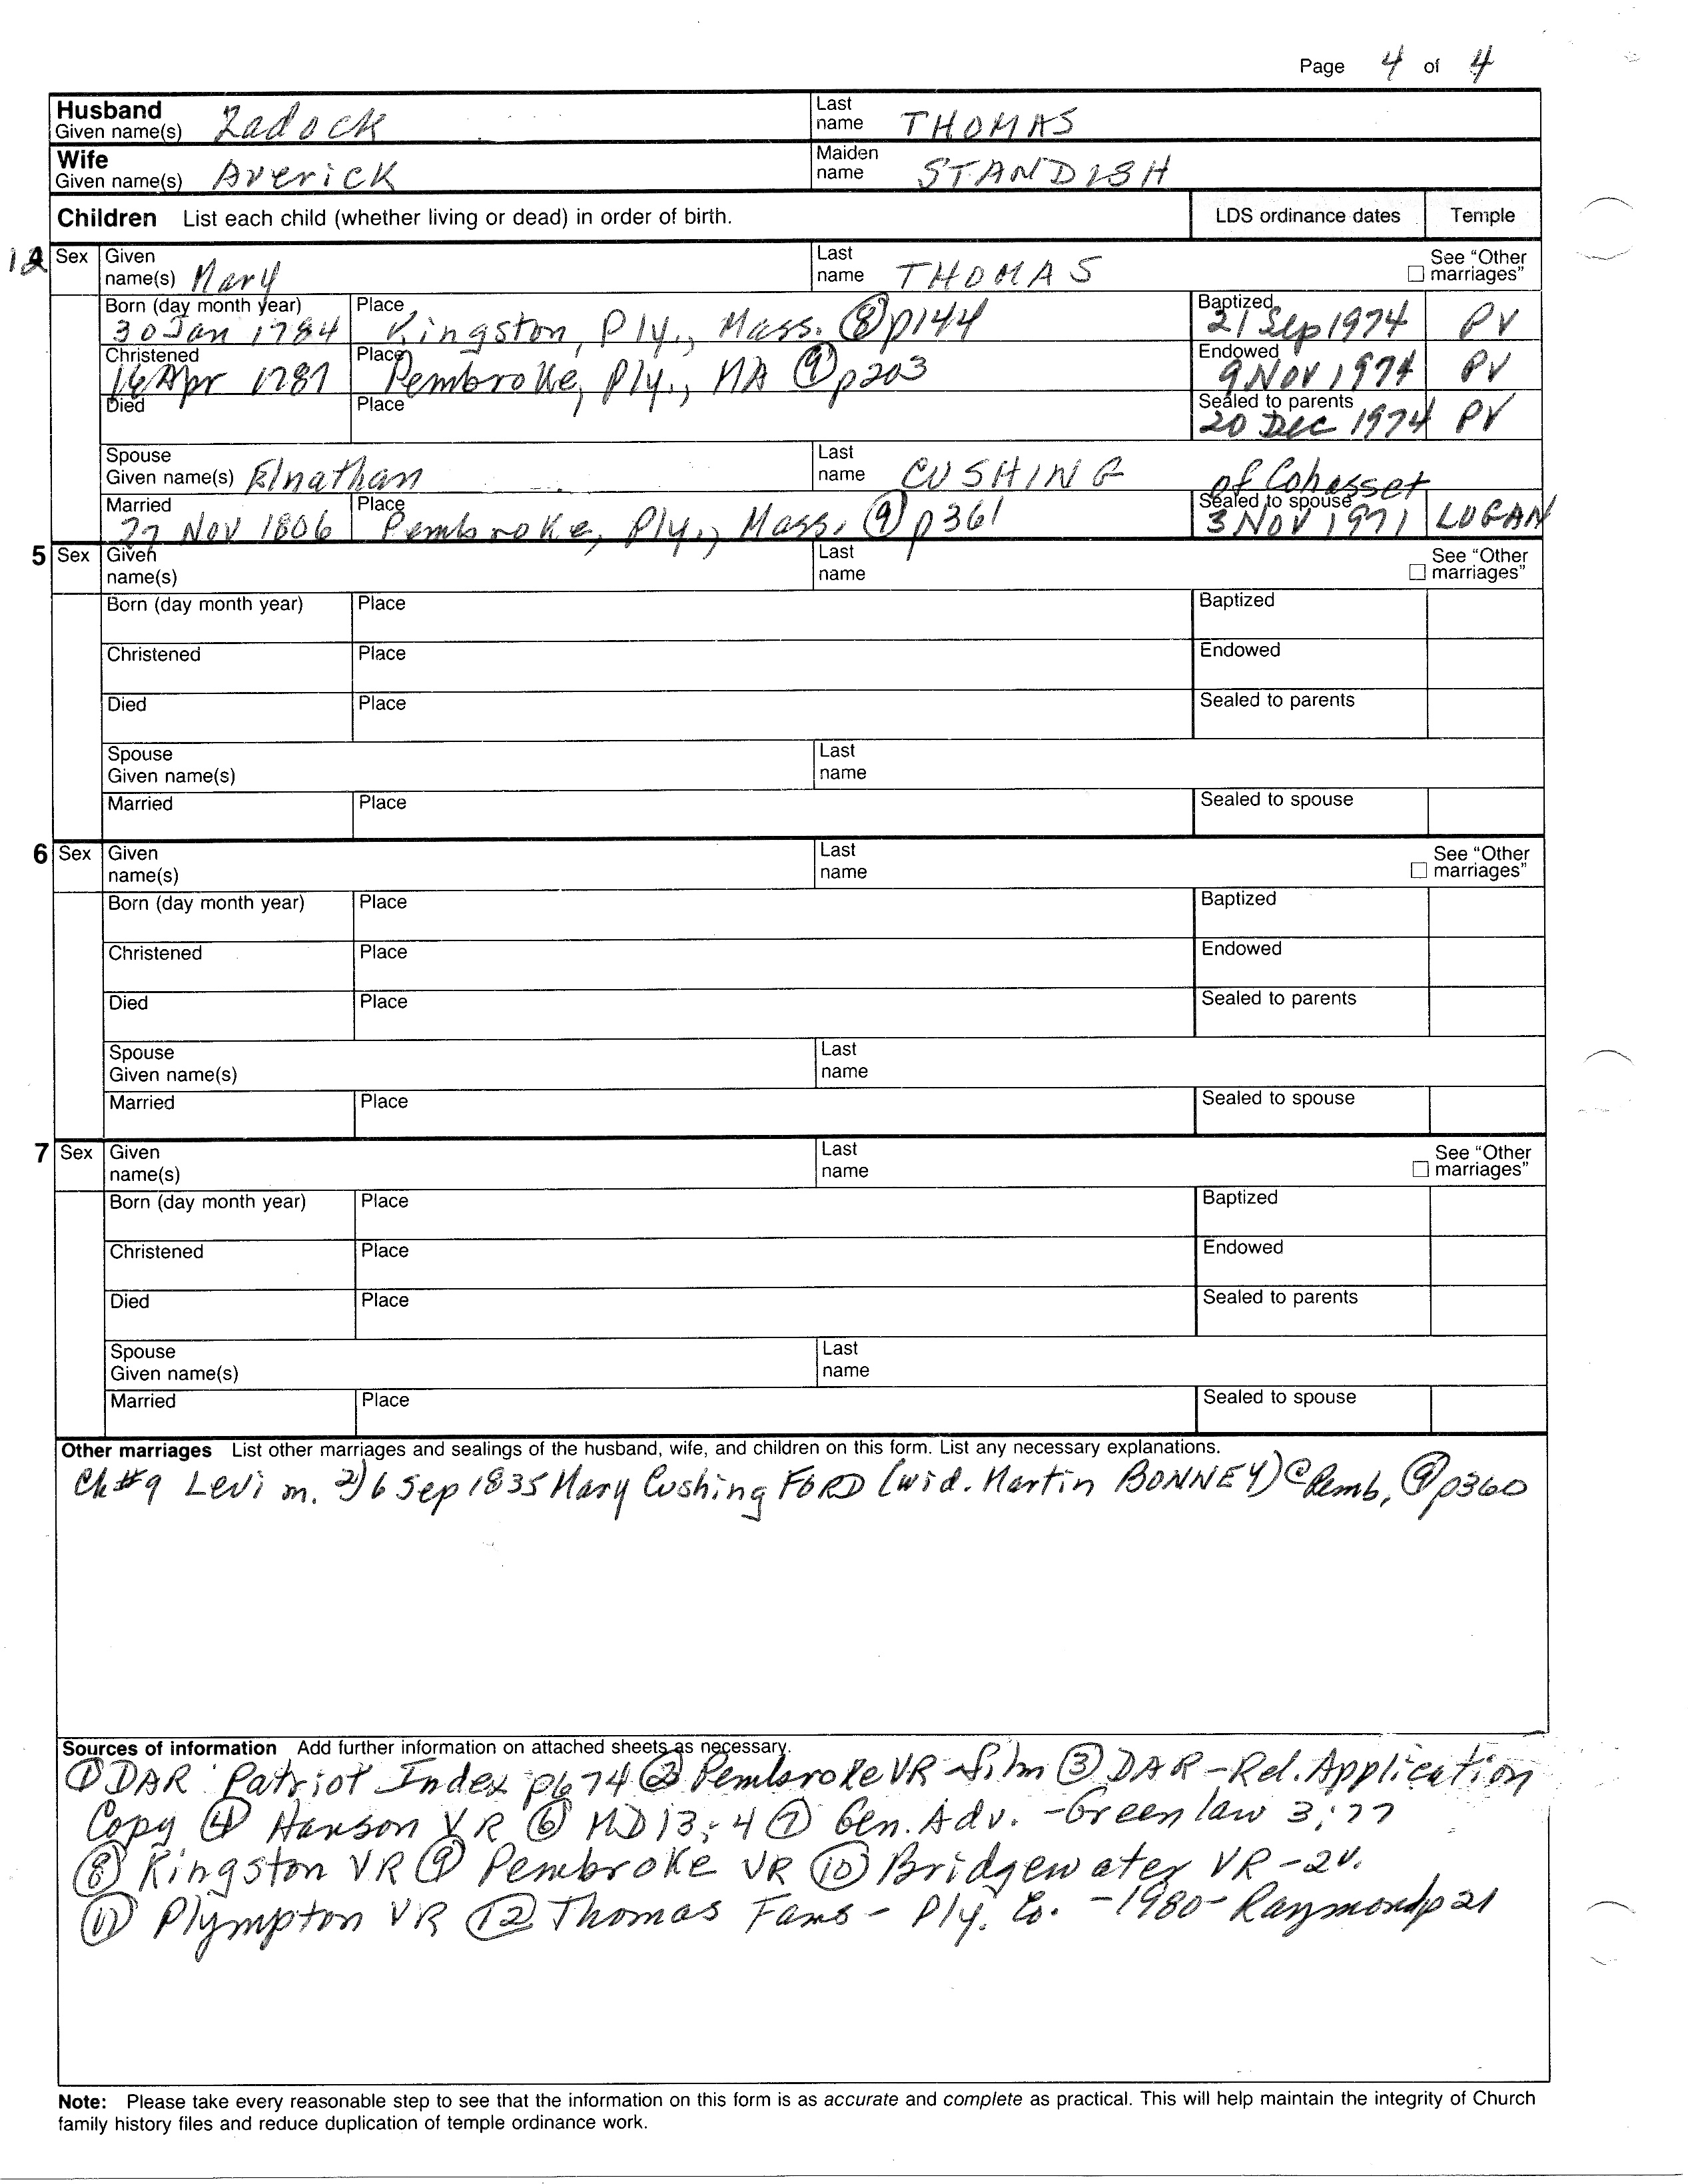 Page 4 of 4
Husband Given name(s) Zadock Last name THOMAS
Wife Given name(s) Averick Maiden name STANDISH
Children List each child (whether living or dead) in order of birth. LDS ordinance dates Temple
12 Sex Given name(s) Mary Last name THOMAS See "Other marriages"
Born (day month year) 30 Jan 1784 Place Kingston, Ply., Mass. ⑧ p144 Baptized 21 Sep 1974 PV
Christened 16 Apr 1787 Place Pembroke, Ply., MA ⑨ p203 Endowed 9 NOV 1974 PV
Died Place Sealed to parents 20 DEC 1974 PV
Spouse Given name(s) Elnathan Last name CUSHING of Cohasset
Married 27 NOV 1806 Place Pembroke, Ply., Mass. ⑨ p361 Sealed to spouse 3 NOV 1971 LOGAN
5 Sex Given name(s) Last name See "Other marriages"
Born (day month year) Place Baptized
Christened Place Endowed
Died Place Sealed to parents
Spouse Given name(s) Last name
Married Place Sealed to spouse
6 Sex Given name(s) Last name See "Other marriages"
Born (day month year) Place Baptized
Christened Place Endowed
Died Place Sealed to parents
Spouse Given name(s) Last name
Married Place Sealed to spouse
7 Sex Given name(s) Last name See "Other marriages"
Born (day month year) Place Baptized
Christened Place Endowed
Died Place Sealed to parents
Spouse Given name(s) Last name
Married Place Sealed to spouse
Other marriages List other marriages and sealings of the husband, wife, and children on this form. List any necessary explanations.
Ch #9 Levi m. 2) 6 Sep 1835 Mary Cushing FORD (wid. Martin BONNEY) @ Pemb, ⑨ p360
Sources of information Add further information on attached sheets as necessary.
① DAR Patriot Index p674 ② Pembroke VR-film ③ DAR-Rel. Application
Copy ④ Hanson VR ⑥ MD 13:4 ⑦ Gen. Adv. -Greenlaw 3:77
⑧ Kingston VR ⑨ Pembroke VR ⑩ Bridgewater VR-2v.
⑪ Plympton VR ⑫ Thomas Fams - Ply. Co. -1980- Raymond p21
Note: Please take every reasonable step to see that the information on this form is as accurate and complete as practical. This will help maintain the integrity of Church
family history files and reduce duplication of temple ordinance work.